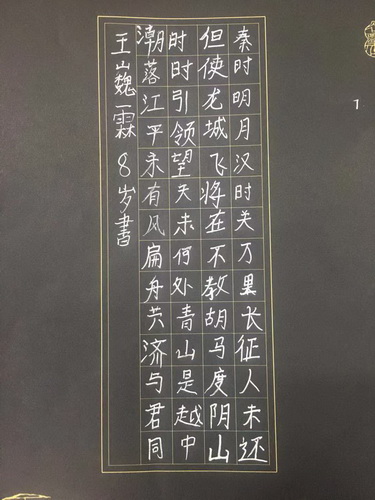 秦时明月汉时关万里长征人未还
但使龙城飞将在不教胡马度阴山
时时引领望天未何处青山是越中
潮落江平未有风扁舟共济与君同
王山魏一霖8岁書
1